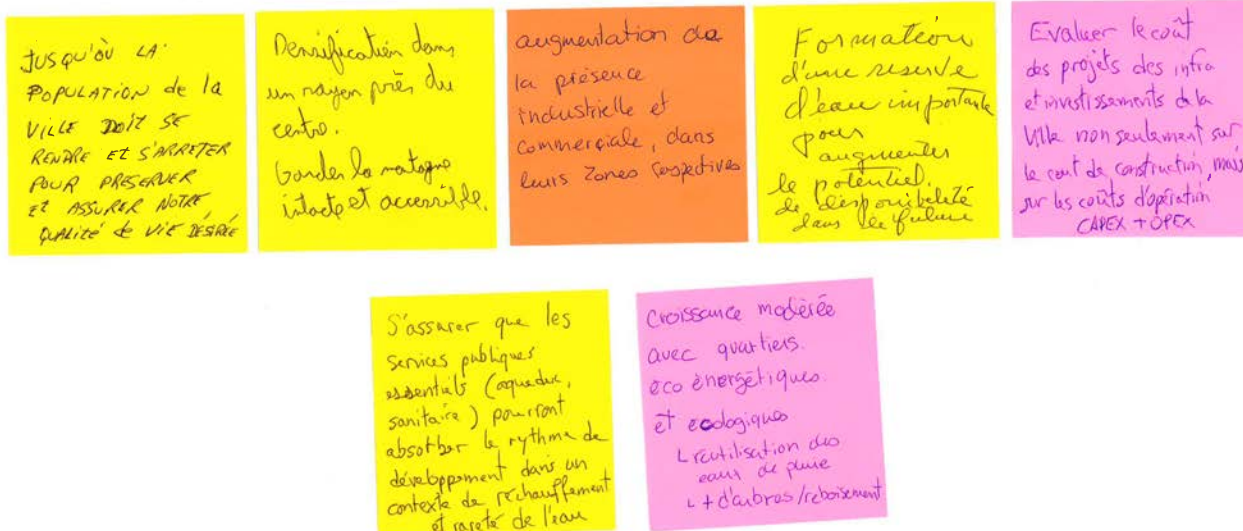 JUSQU'OÙ LA
POPULATION de la
VILLE DOIT SE
RENDRE ET S'ARRETER
POUR PRESERVER
ET ASSURER NOTRE
QUALITÉ de VIE DÉSIRÉE
Densification dans
un rayon près du
centre.
Garder la montagne
intacte et accessible.
augmentation de
la présence
industrielle et
commerçiale, dans
leurs zones respectives
Formation
d'une reserve
d'eau importante
pour
augmenter
le potentiel
de disponibilité
dans le future
Evaluer le coût
des projets des infra
et investissements de la
Ville non seulement sur
le cout de construction, mais
sur les coûts d'opération
CAPEX + OPEX
S'assurer que les
services publiques
essentiels (aqueduc,
sanitaire) pourront
absorber le rythme de
développement dans un
contexte de réchauffement
et rareté de l'eau
Croissance modérée
avec quartiers.
éco énergétiques.
et ecologiques
réutilisation des
eaux de pluie
+ d'arbres/reboisement